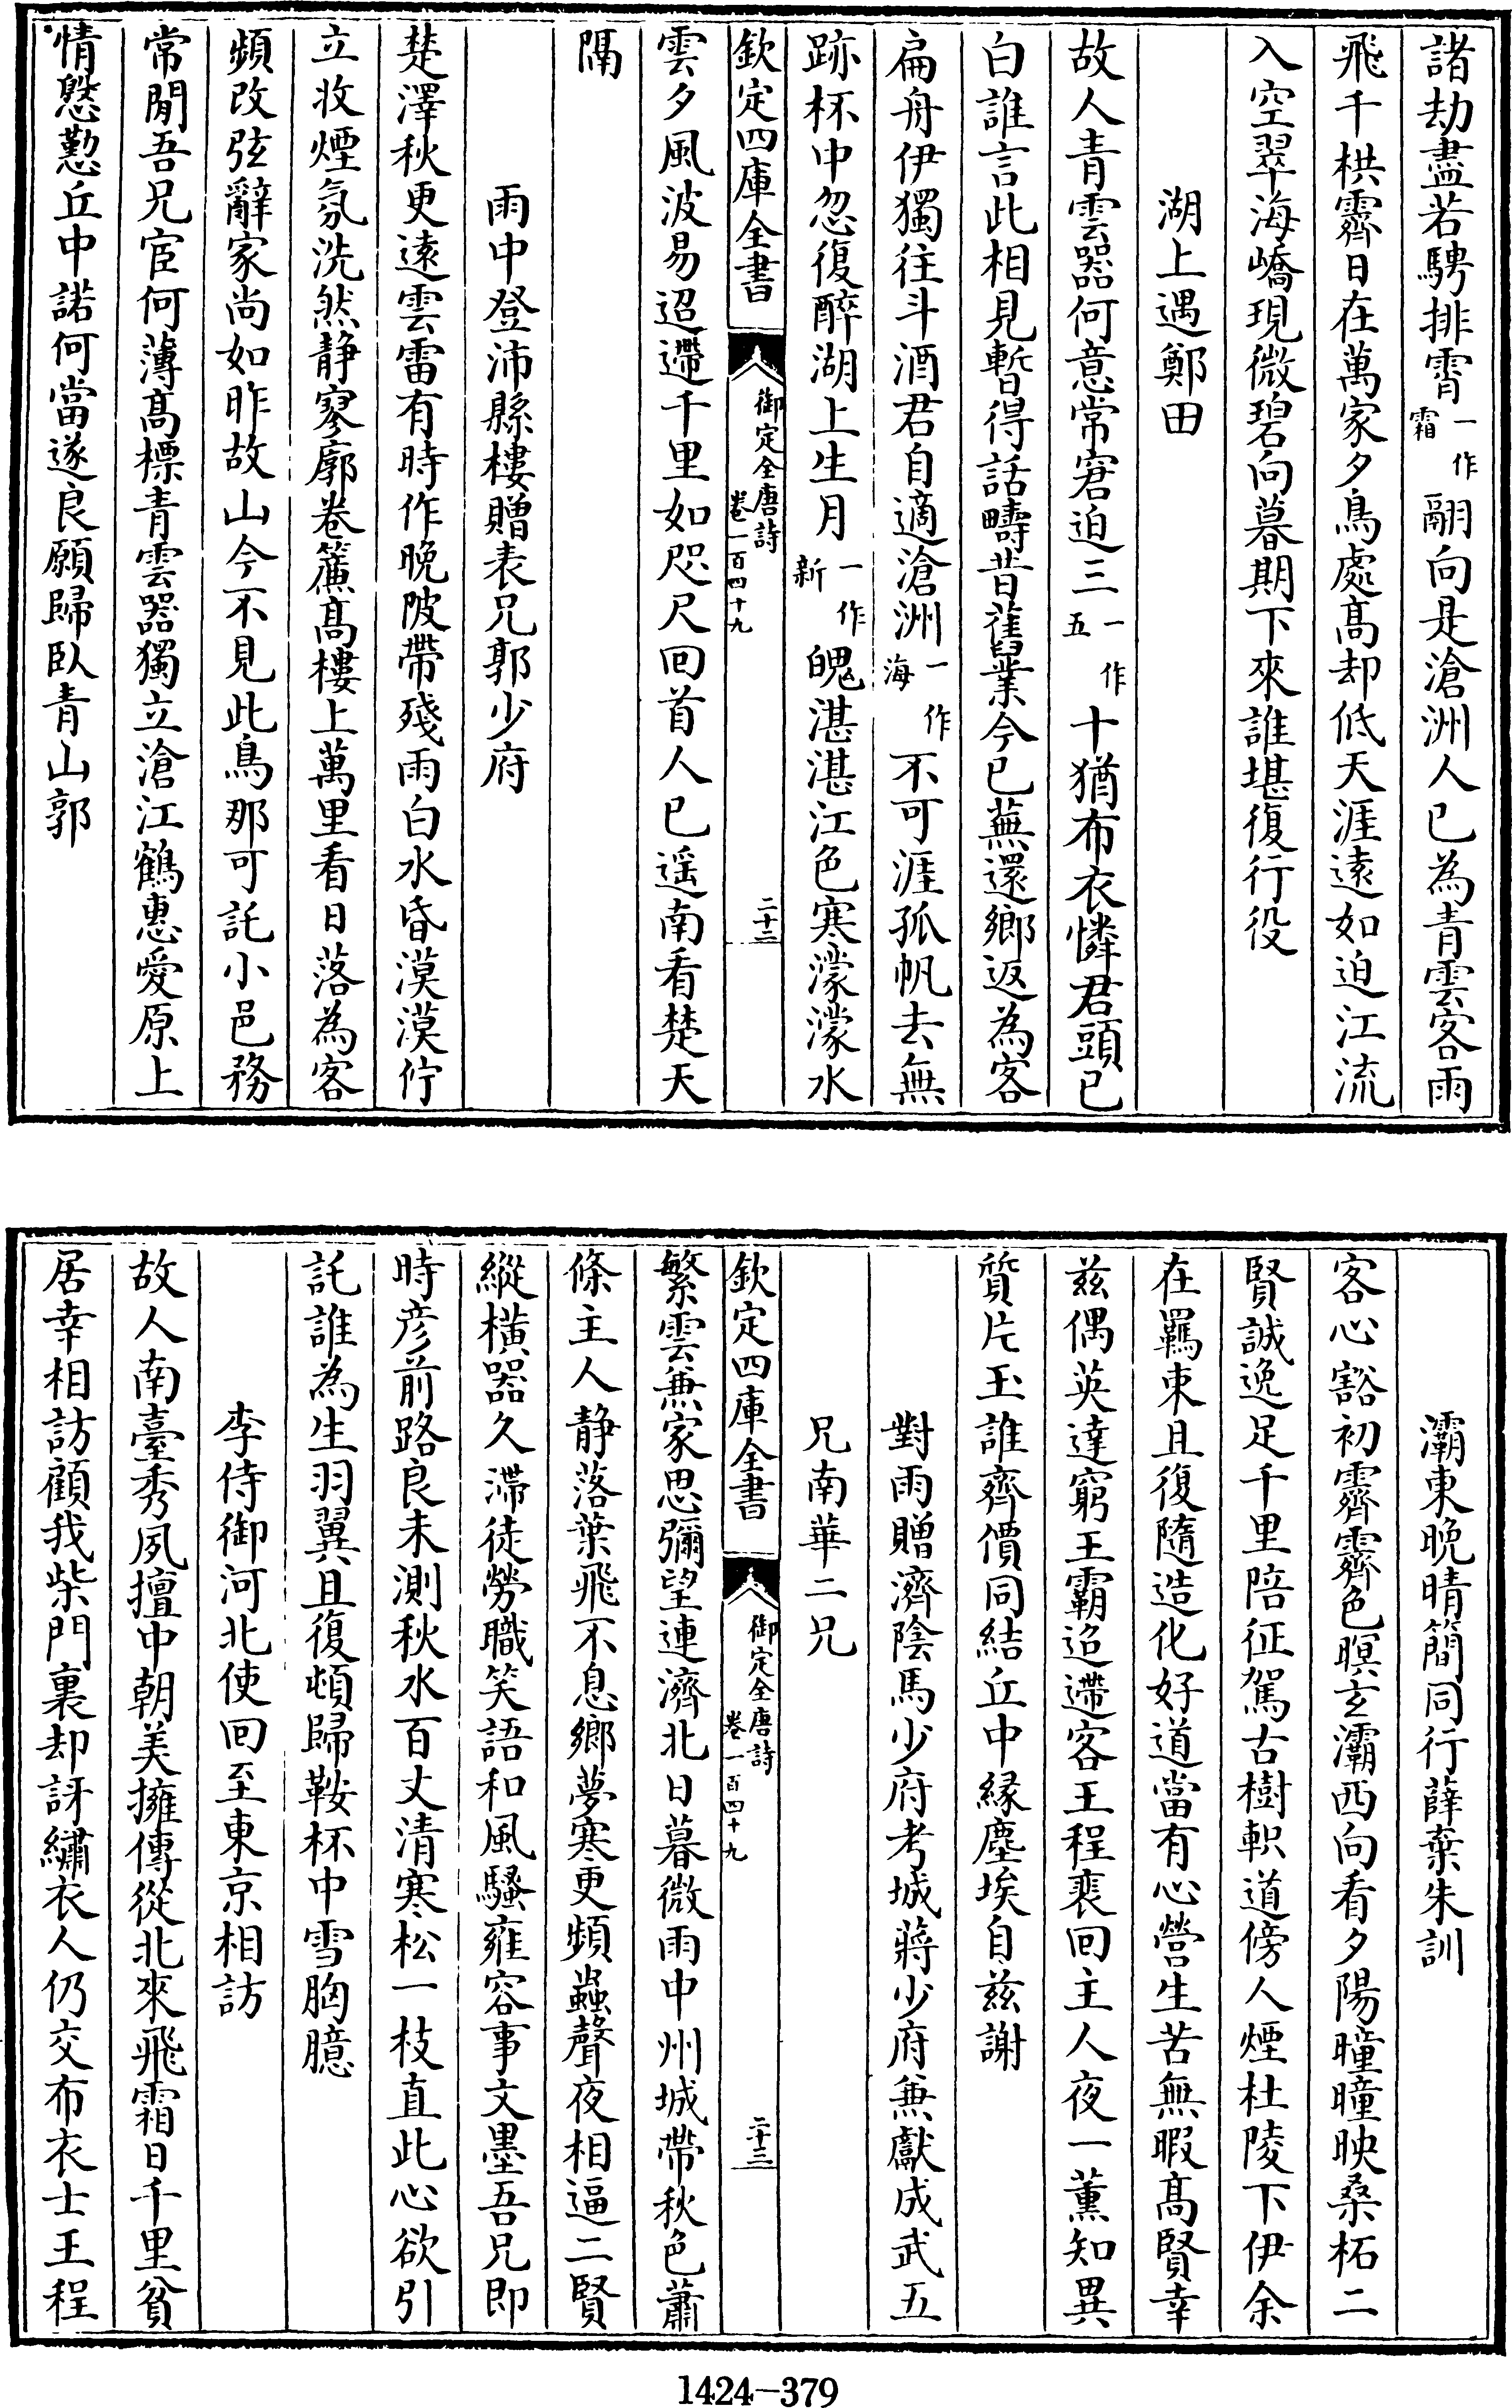 諸劫盡若騁排霄一作霜翮向是滄洲人已為青雲客雨
飛千栱霽日在萬家夕鳥處髙却低天涯遠如迫江流
入空翠海嶠現微碧向暮期下來誰堪復行役
湖上遇鄭田
故人青雲器何意常窘迫三一作五十猶布衣憐君頭已
白誰言此相見暫得話疇昔舊業今已蕪還鄉返為客
扁舟伊獨往斗酒君自適滄洲一作海不可涯孤帆去無
跡杯中忽復醉湖上生月一作新魄湛湛江色寒濛濛水
欽定四庫全書
御定全唐詩
卷一百四十九
二十二
雲夕風波易迢遰千里如咫尺回首人已遥南看楚天
隔
雨中登沛縣樓贈表兄郭少府
楚澤秋更遠雲雷有時作晚陂帶殘雨白水昏漠漠佇
立收煙氛洗然静寥廓卷簾髙樓上萬里看日落為客
頻改弦辭家尚如昨故山今不見此鳥那可託小邑務
常閒吾兄宦何薄髙標青雲器獨立滄江鶴惠愛原上
情慇懃丘中諾何當遂良願歸臥青山郭
灞東晚晴簡同行薛棄朱訓
客心豁初霽霽色暝玄灞西向看夕陽曈曈映桑柘二
賢誠逸足千里陪征駕古樹軹道傍人煙杜陵下伊余
在羈束且復隨造化好道當有心營生苦無暇髙賢幸
兹偶英達窮王霸迢遰客王程裵回主人夜一薰知異
質片玉誰齊價同結丘中縁塵埃自兹謝
對雨贈濟陰馬少府考城蔣少府兼獻成武五
兄南華二兄
繁雲兼家思彌望連濟北日暮微雨中州城帶秋色蕭
條主人静落葉飛不息鄉夢寒更頻蟲聲夜相逼二賢
縱橫器久滯徒勞職笑語和風騷雍容事文墨吾兄即
時彦前路良未測秋水百丈清寒松一枝直此心欲引
託誰為生羽翼且復頓歸鞍杯中雪胸臆
李侍御河北使回至東京相訪
故人南臺秀夙擅中朝美擁傳從北來飛霜日千里貧
居幸相訪顧我柴門裏却訝繡衣人仍交布衣士王程
欽定四庫全書
御定全唐詩
卷一百四十九
二十三
1424-379